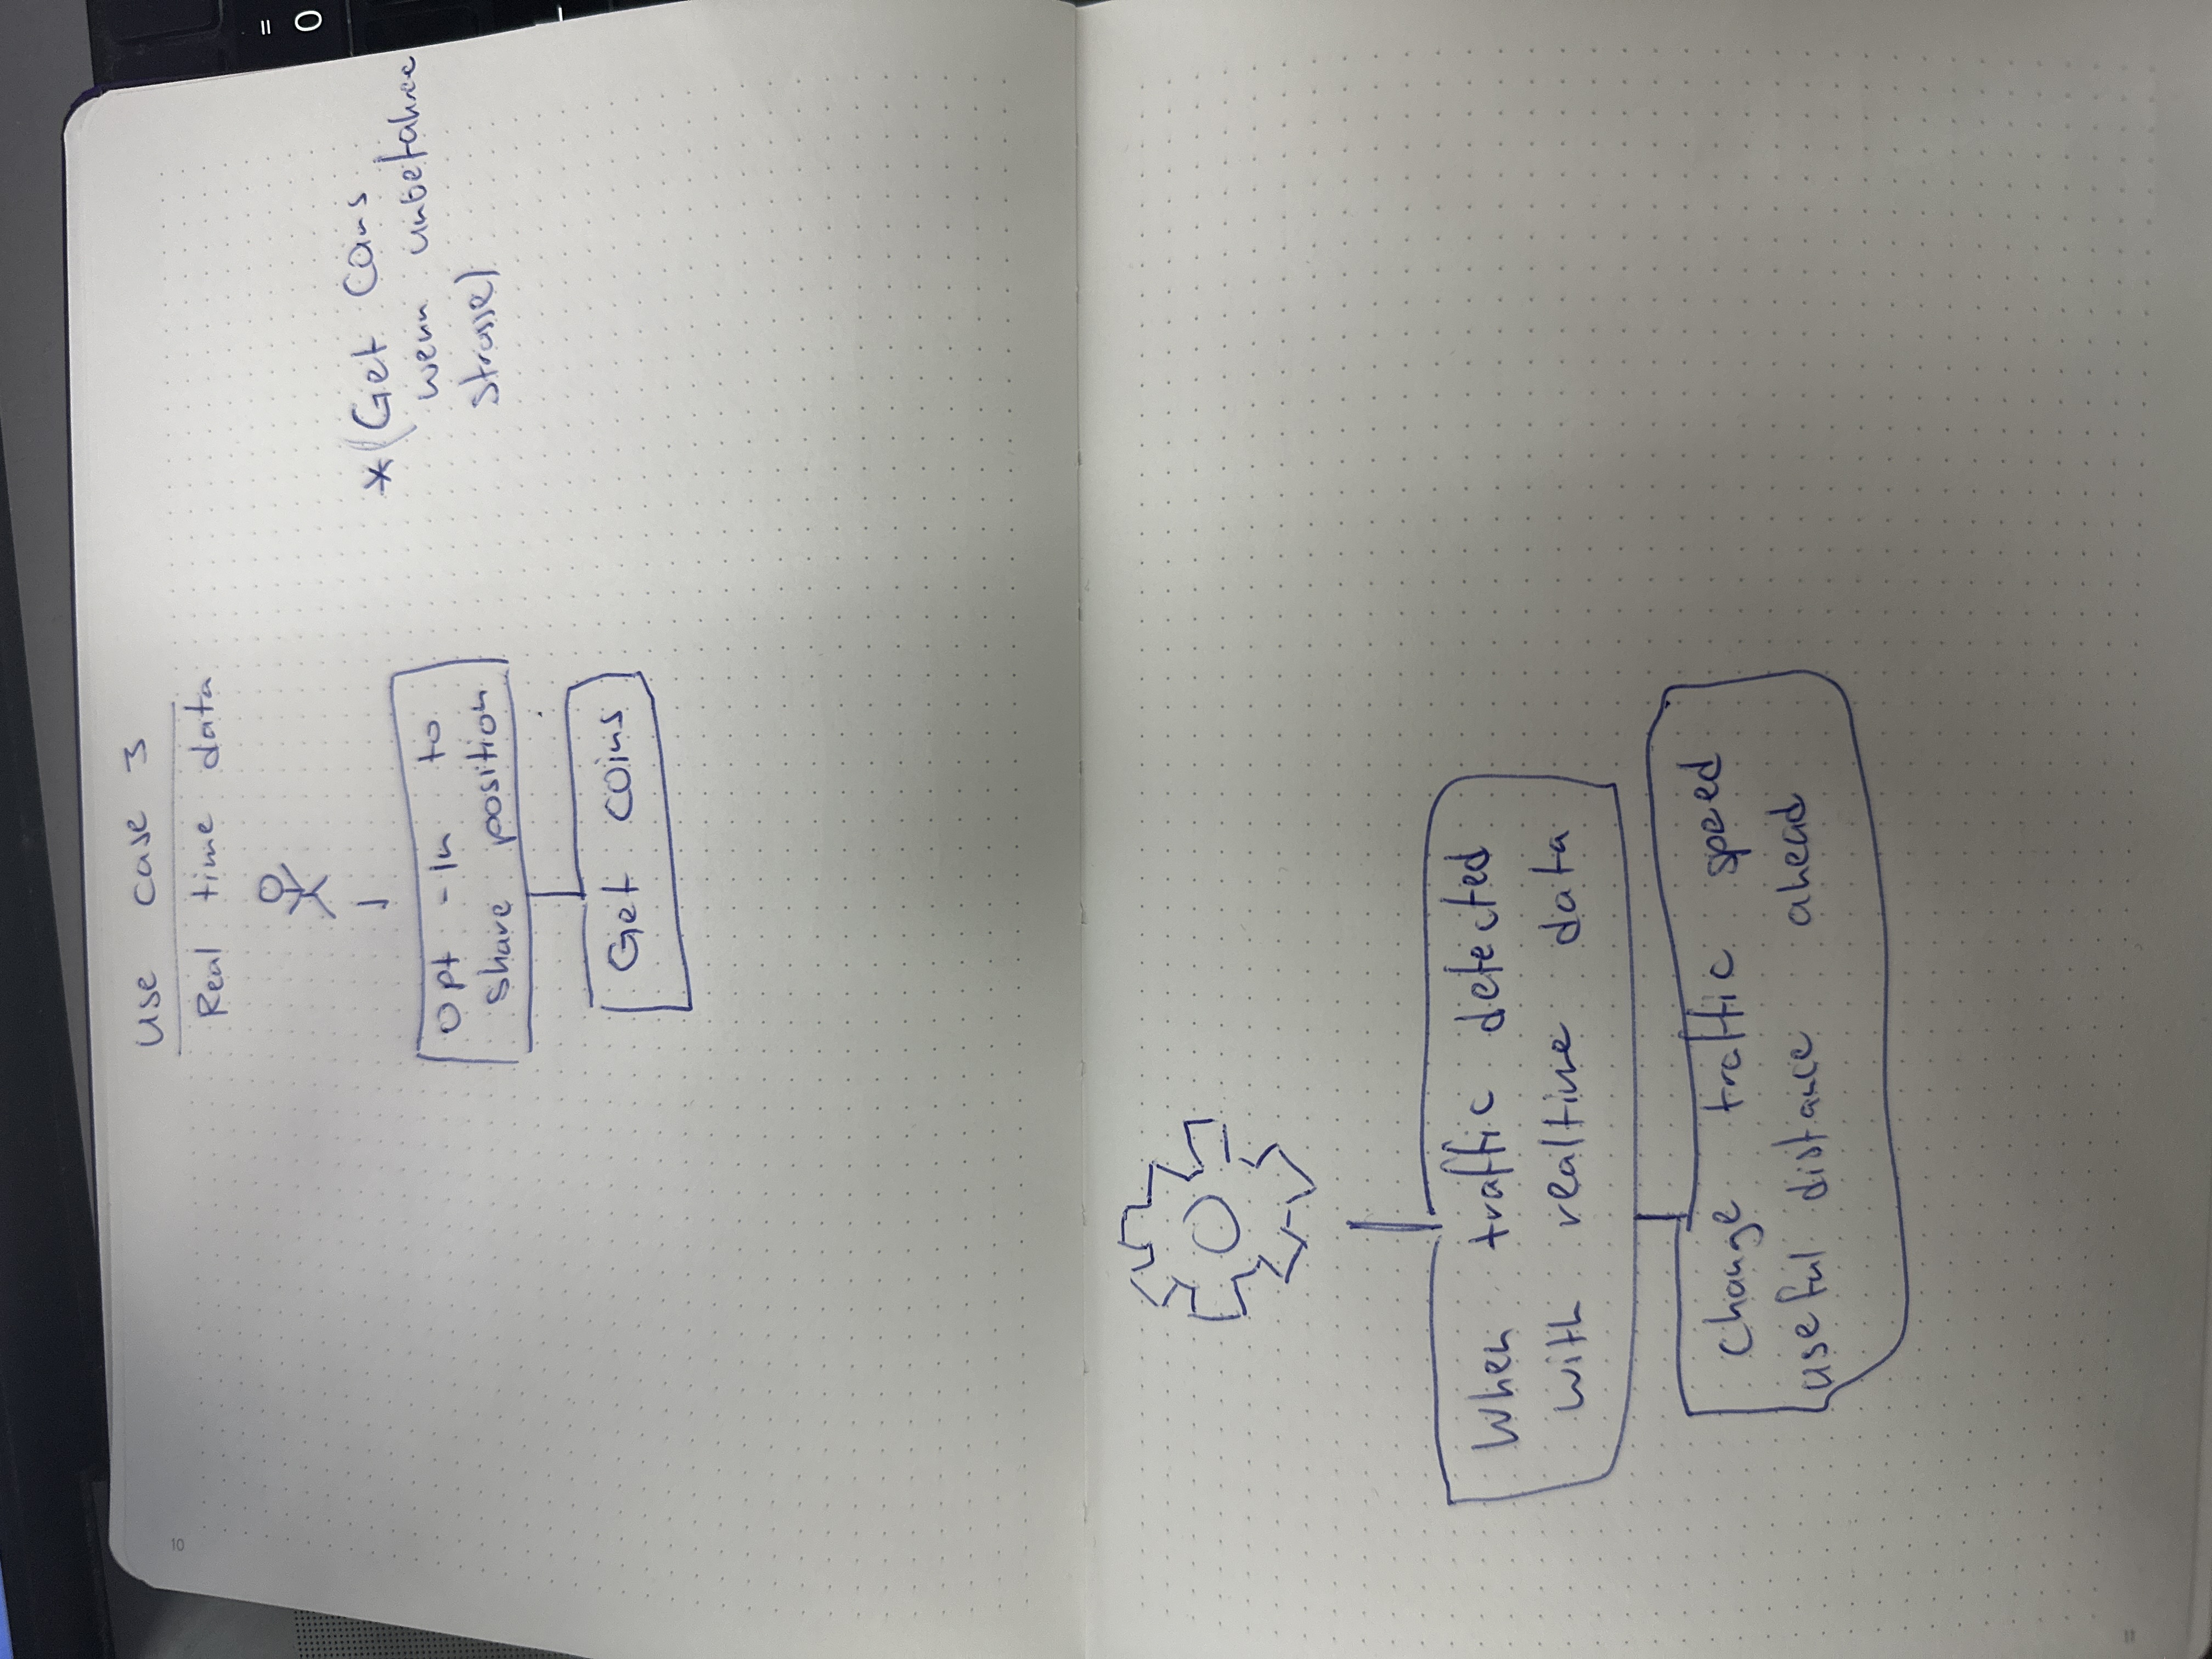 use case 3
Real time data
*(Get Coins
wenn unbefahrene
Strasse)
Opt-In to
share position
Get coins
When traffic detected
with realtime data
change traffic speed
useful distance ahead
10
11
=
0